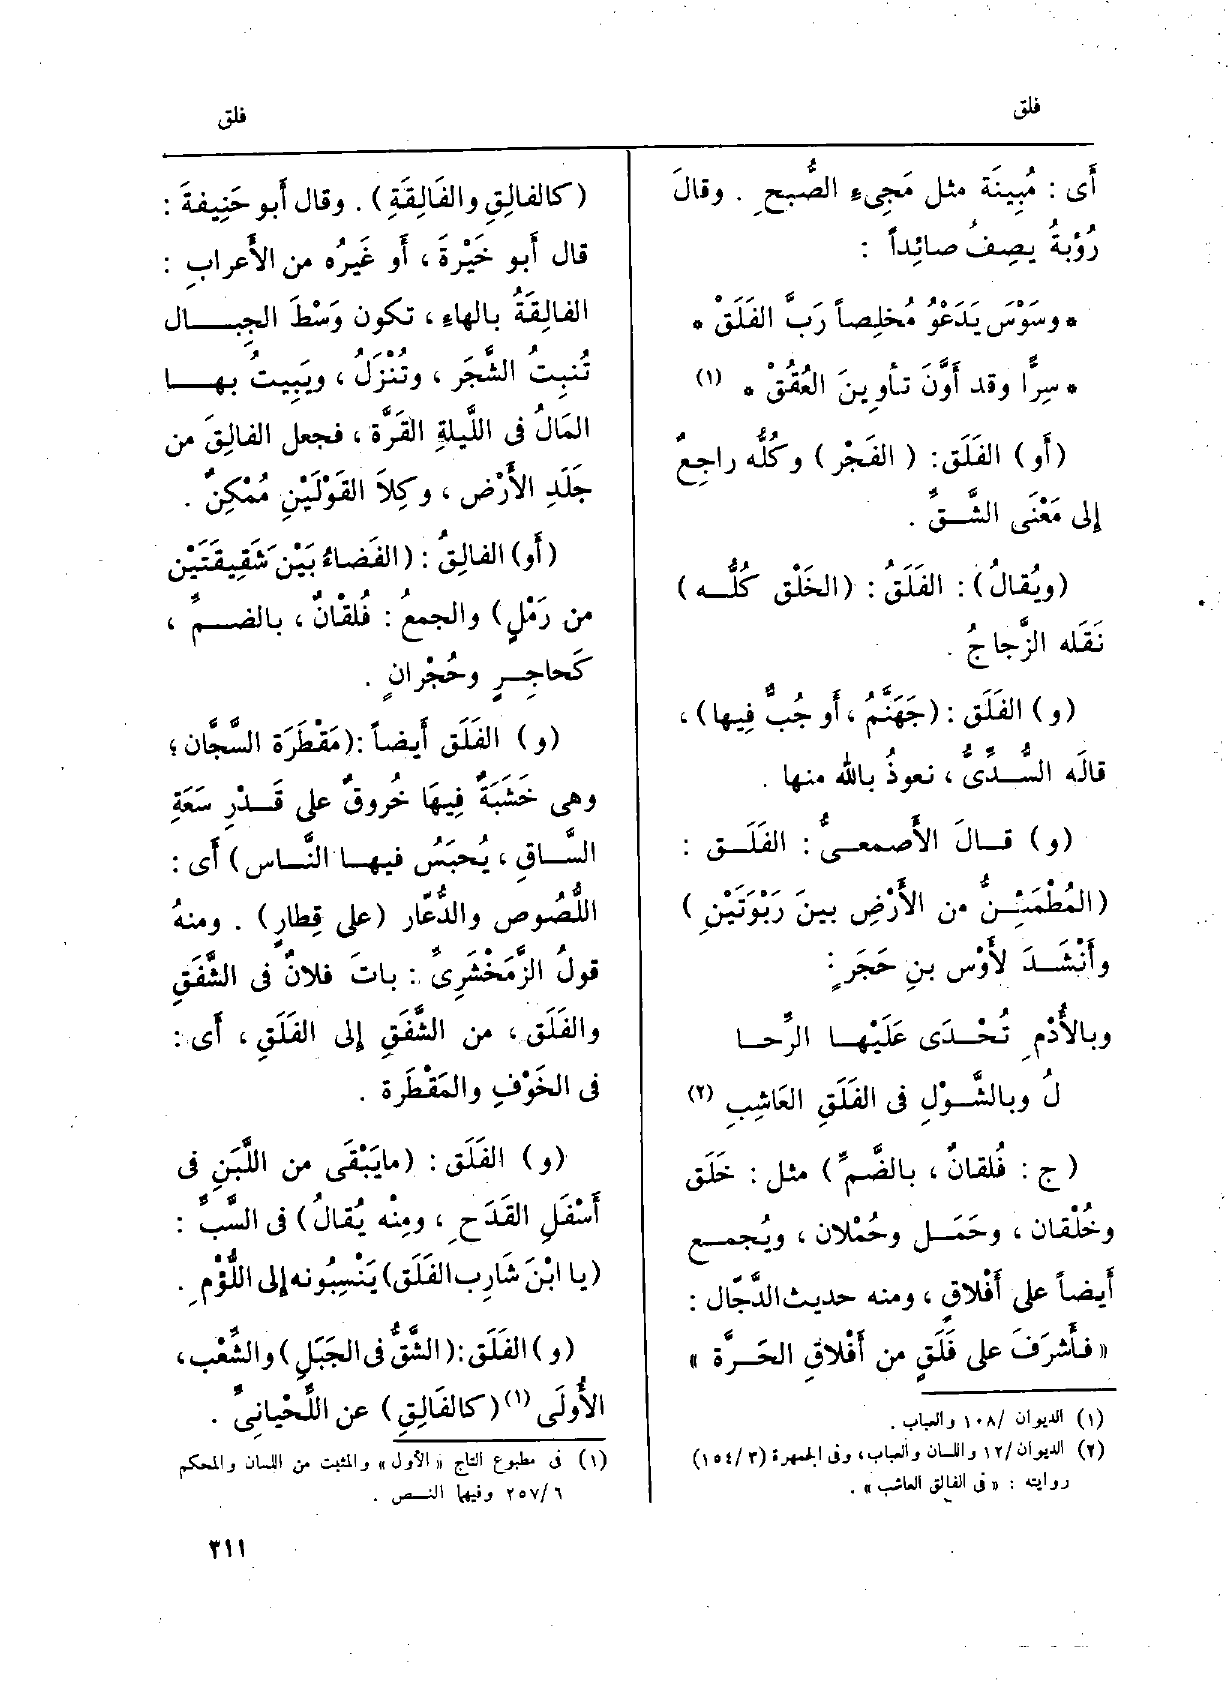 فلق
فلق
أَى : مُبِينَة مثل مَجِىءِ الصُّبحِ . وقالَ
رُؤْبةُ يصِفُ صائِداً :
* وسَوْسَ يَدَعْوُ مُخلِصاً رَبَّ الفَلَقْ *
* سِرًّا وقد أَوَّنَ تأوِينَ العُقُقْ * (١)
(أَو) الفَلَق: ( الفَجْر ) وكُلُّه راجِعٌ
إلى مَعْنَى الشَّــقِّ .
(ويُقالُ) : الفَلَقُ : (الخَلْق كُلُّــه )
نَقَله الزَّجاجُ .
(و) الفَلَق : (جَهَنَّمُ ، أَو جُبٌّ فِيها) ،
قالَه السُّــدِّىُّ ، نعوذُ بالله منها .
(و) قــالَ الأَصمعــىُّ : الفَلَــق :
(المُطْمَئِــنُّ من الأَرْضِ بينَ رَبْوَتَيْنِ )
وأَنْشَــدَ لأَوْس بنِ حَجَرٍ :
وبالأُدْمِ تُحْــدَى عَلَيْهــا الرِّحــا
لُ وبالشَّــوْلِ فى الفَلَقِ العَاشِبِ (٢)
( ج : فُلقانٌ ، بالضَّمِّ ) مثل : خَلَق
وخُلْقان ، وحَمَــل وحُمْلان ، ويُجمــع
أَيضاً على أَفْلاقٍ ، ومنه حديث الدَّجّال :
« فأَشرَفَ على فَلَقٍ من أَفْلاقِ الحَــرَّة »
(١) الديوان /١٠٨ والعباب .
(٢) الديوان /١٢ واللسان والعباب، وفى الجمهرة (٣/ ١٥٤)
روايته : « فى الفالق العاشب » .
(كالفالِقِ والفَالِقَةِ) . وقال أَبو حَنِيفةَ :
قال أَبو خَيْرةَ ، أَو غَيرُه من الأَعرابِ :
الفالِقَةُ بالهاءِ ، تكون وَسْطَ الجِبــال
تُنبِتُ الشَّجَر ، وتُنْزَلُ ، ويَبِيتُ بهــا
المَالُ فى اللَّيلةِ القَرَّة ، فجعل الفالِقَ من
جَلَدِ الأَرْض ، وكِلاَ القَوْلَيْنِ مُمْكِنٌ .
(أَو) الفالِقُ : (الفَضاءُ بَيْن شَقِيقَتَيْن
من رَمْلٍ) والجمعُ : فُلقْانٌ ، بالضــمِّ ،
كَحاجِــرٍ وحُجْرانٍ .
(و) الفَلَق أَيضاً :(مَقْطَرَة السَّجَّان ؛
وهى خَشَبَةٌ فِيهَا خُروقٌ على قَــدْرِ سَعَةِ
السَّــاقِ ، يُحبَسُ فيهــا النَّــاس ) أَى :
اللُّصُوص والدُّعّار (على قِطارٍ) . ومنهُ
قولُ الزَّمَخْشَرِىِّ : باتَ فلانٌ فى الشَّفَقِ
والفَلَق ، من الشَّفَقِ إلى الفَلَقِ ، أَى :
فى الخَوْفِ والمَقْطَرة .
(و) الفَلَق : (مايَبْقَى من اللَّبَنِ فى
أَسْفَلِ القَدَحِ ، ومِنْه يُقالُ) فى السَّبِّ :
(يا ابْنَ شَارِب الفَلَق) يَنْسِبُونه إلى اللُّؤْمِ .
(و) الفَلَق :(الشَّقُّ فى الجَبَلِ) والشِّعْب ،
الأُولَى (١) (كالفَالِقِ) عن اللِّحْيانِىّ .
(١) فى مطبوع التاج « الأول » والمثبت من اللسان والمحكم
٦/ ٢٥٧ وفيها النــص .
٣١١